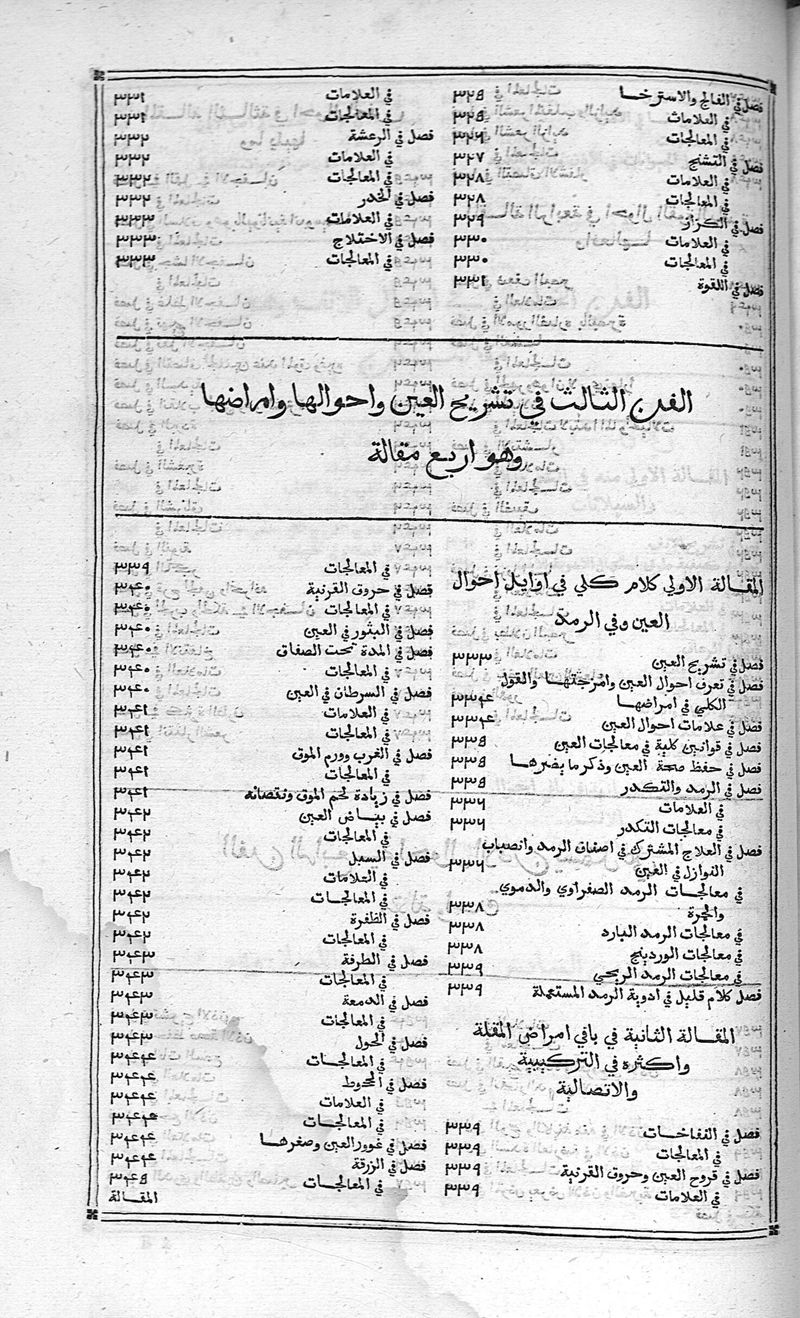 فصل في الفالج والاسترخا ٣٢٥
في العلامات ٣٢٥
في المعالجات ٣٢٦
فصل في التشنج ٣٢٧
في العلامات ٣٢٨
في المعالجات ٣٢٨
فصل في الكزاز ٣٢٩
في العلامات ٣٣٠
في المعالجات ٣٣٠
فصل في اللقوة ٣٣١
في العلامات ٣٣١
في المعالجات ٣٣١
فصل في الرعشة ٣٣٢
في العلامات ٣٣٢
في المعالجات ٣٣٢
فصل في الخدر ٣٣٢
في العلامات ٣٣٣
فصل في الاختلاج ٣٣٣
في المعالجات ٣٣٣
الفن الثالث في تشريح العين واحوالها وامراضها
وهو اربع مقالة
المقالة الاولي كلام كلي في اوايل احوال
العين وفي الرمد
فصل في تشريح العين ٣٣٣
فصل في تعرف احوال العين وامزجتها والقول
الكلي في امراضها ٣٣٤
فصل في علامات احوال العين ٣٣٤
فصل في قوانين كلية في معالجات العين ٣٣٥
فصل في حفظ صحة العين وذكر ما يضرها ٣٣٥
فصل في الرمد والتكدر ٣٣٥
في العلامات ٣٣٦
في معالجات التكدر ٣٣٦
فصل في العلاج المشترك في اصناف الرمد وانصباب
النوازل في العين ٣٣٦
في معالجات الرمد الصفراوي والدموي
والحمرة ٣٣٨
في معالجات الرمد البارد ٣٣٨
في معالجات الوردينج ٣٣٨
في معالجات الرمد الريحي ٣٣٩
فصل كلام قليل في ادوية الرمد المستعملة ٣٣٩
المقالة الثانية في باقي امراض المقلة
واكثره في التركيبية
والاتصالية
فصل في النفاخات ٣٣٩
في المعالجات ٣٣٩
فصل في قروح العين وحروق القرنية ٣٣٩
في العلامات ٣٣٩
في المعالجات ٣٣٩
فصل في حروق القرنية ٣٤٠
في المعالجات ٣٤٠
فصل في البثور في العين ٣٤٠
فصل في المدة تحت الصفاق ٣٤٠
في المعالجات ٣٤٠
فصل في السرطان في العين ٣٤٠
في العلامات ٣٤١
في المعالجات ٣٤١
فصل في الغرب وورم الموق ٣٤١
في المعالجات ٣٤١
فصل في زيادة لحم الموق ونقصانه ٣٤١
فصل في بياض العين ٣٤٢
في المعالجات ٣٤٢
فصل في السبل ٣٤٢
في العلامات ٣٤٢
في المعالجات ٣٤٢
فصل في الظفرة ٣٤٢
في المعالجات ٣٤٢
فصل في الطرفة ٣٤٣
في المعالجات ٣٤٣
فصل في الدمعة ٣٤٣
في المعالجات ٣٤٣
فصل في الحول ٣٤٣
في المعالجات ٣٤٤
فصل في الجحوظ ٣٤٤
في العلامات ٣٤٤
في المعالجات ٣٤٤
فصل في غوور العين وصغرها ٣٤٤
فصل في الزرقة ٣٤٤
في المعالجات ٣٤٥
المقالة